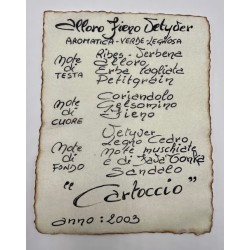 Alloro Fieno Vetyver
AROMATICA-VERDE-LEGNOSA
Note di TESTA
Ribes-Verbena
Alloro
Erba tagliata
Petitgrain
Note di CUORE
Coriandolo
Gelsomino
Fieno
Note di FONDO
Vetyver
Legno Cedro,
Note muschiate
e di Fava Tonka
Sandalo
"Cartoccio"
anno:2003